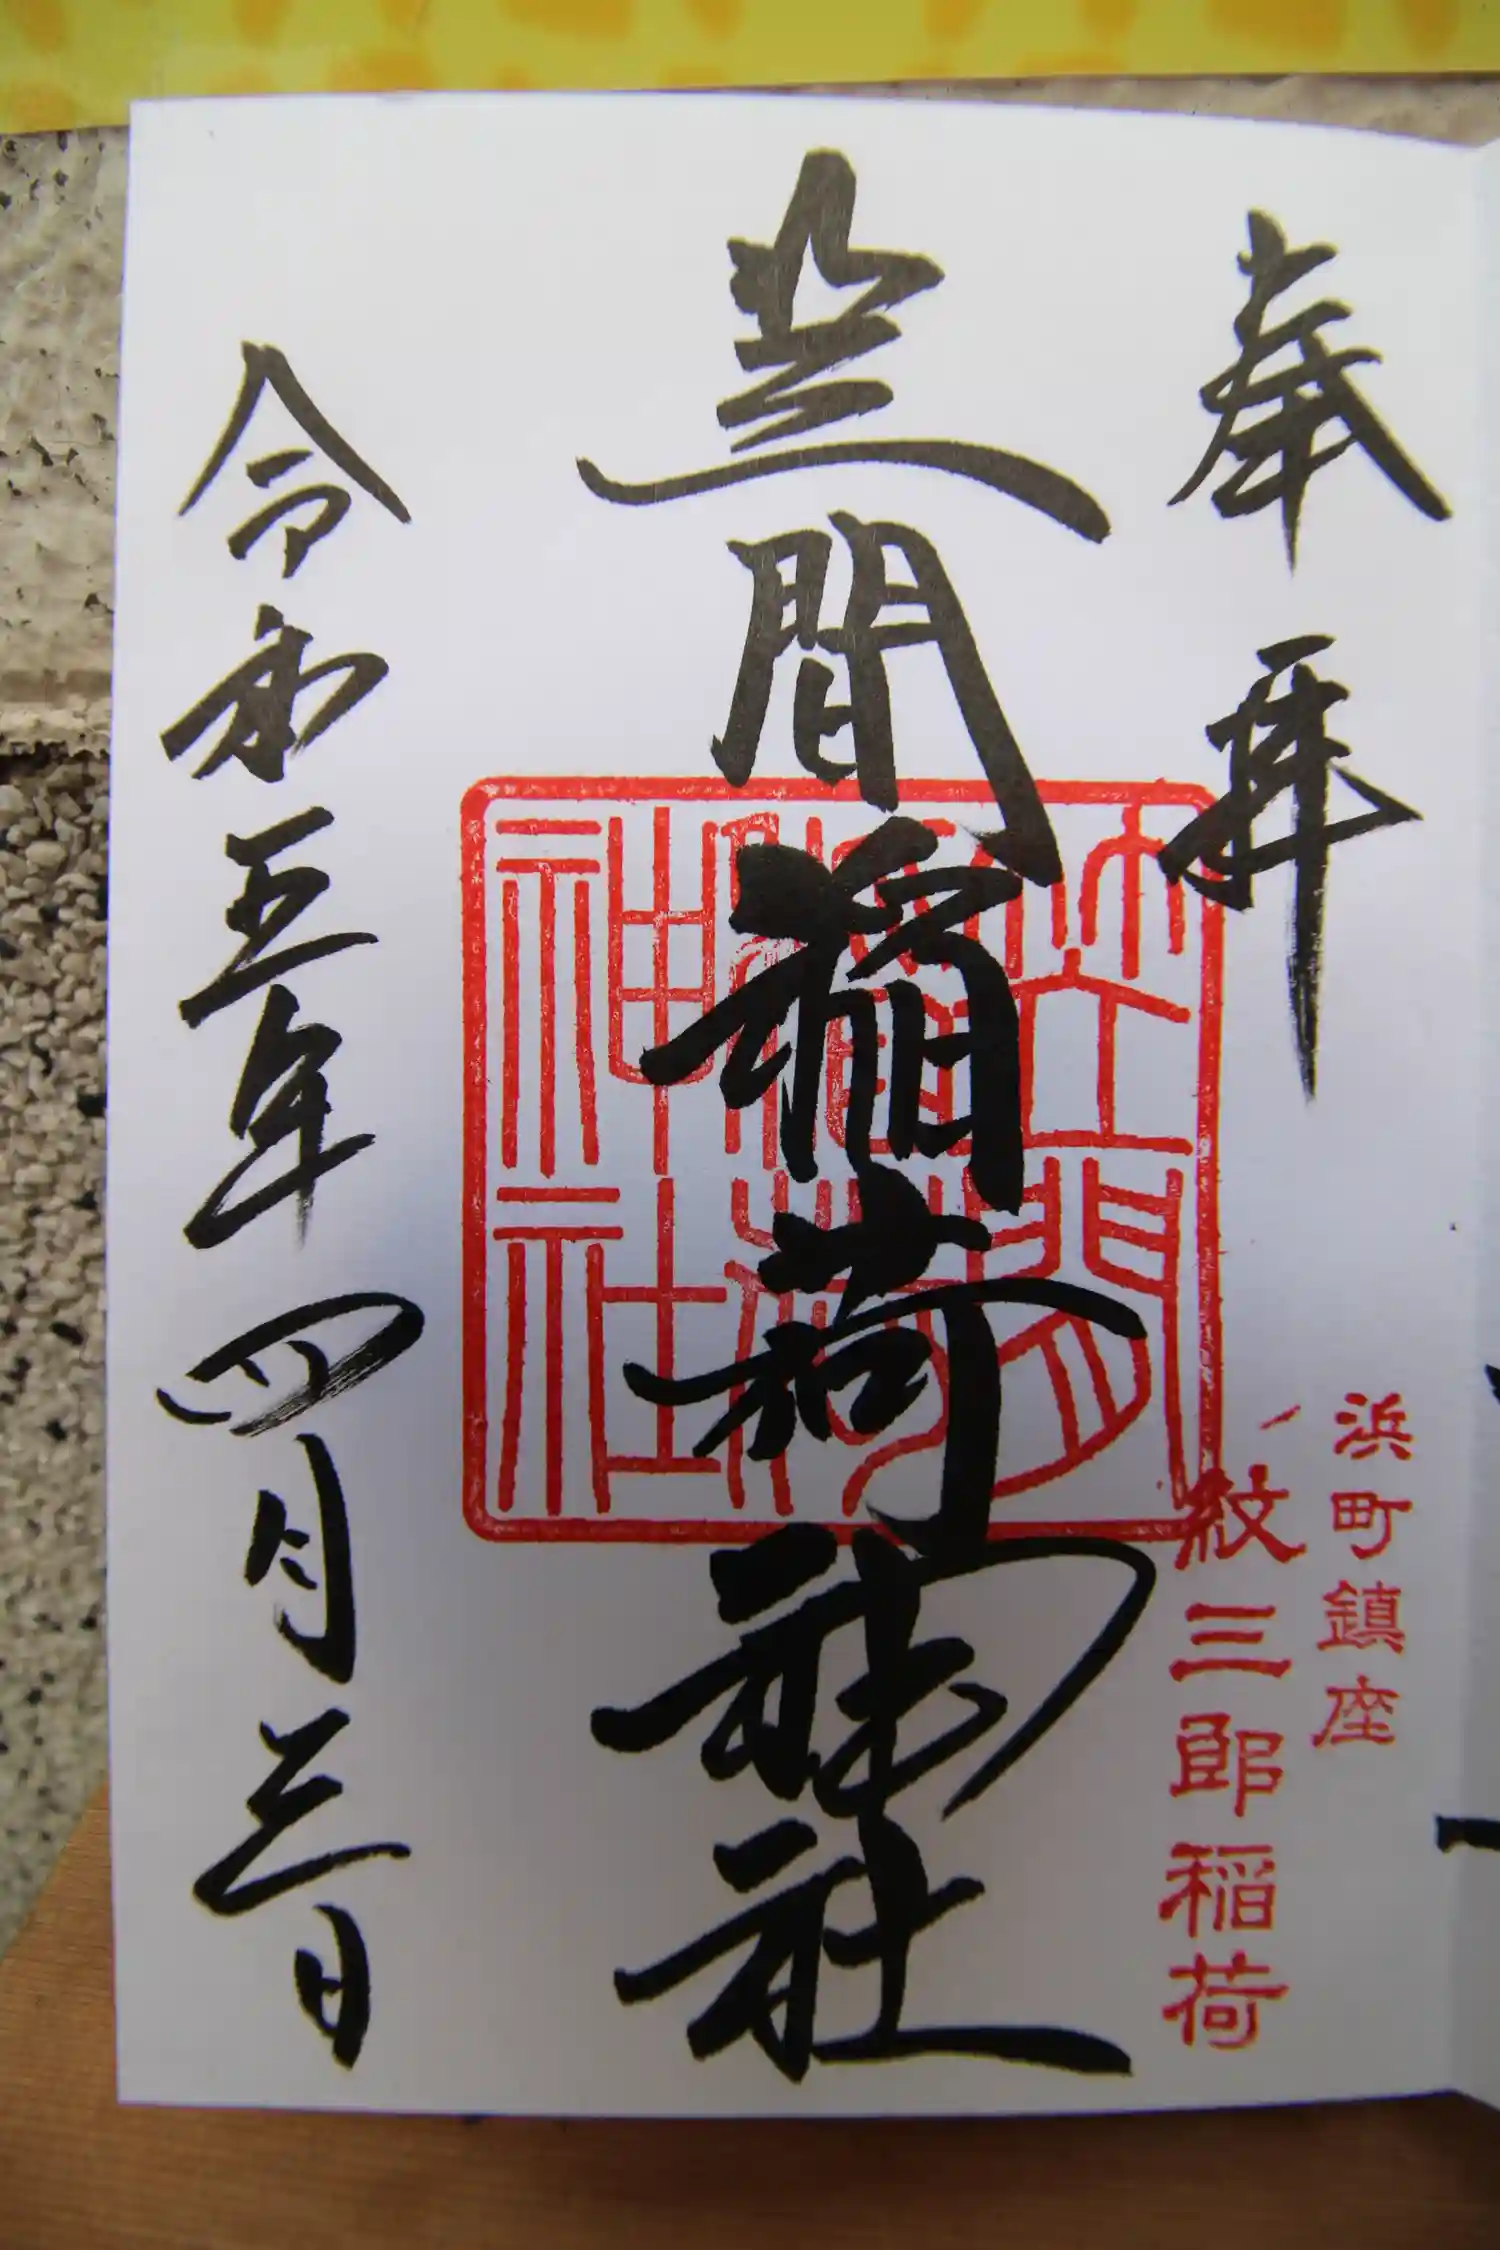 奉拝
浜町鎮座
紋三郎稲荷
笠間稲荷神社
笠間稲荷神社
令和五年四月三日